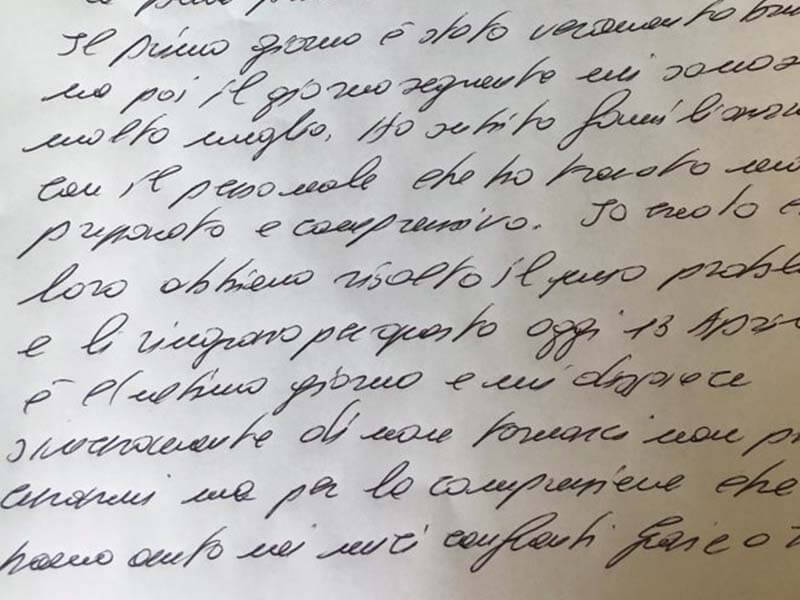 Il primo giorno è stato veramente
ma poi il giorno seguente mi sono
molto meglio. Ho subito familiarizza
con il personale che ho trovato
preparato e comprensivo. Io credo
loro abbiano risolto il mio proble
e li ringrazio per questo oggi 13 Apri
è l'ultimo giorno e mi dispiace
sinceramente di non tornarci non
curarmi ma per la comprensione che
hanno avuto nei miei confronti Grazie